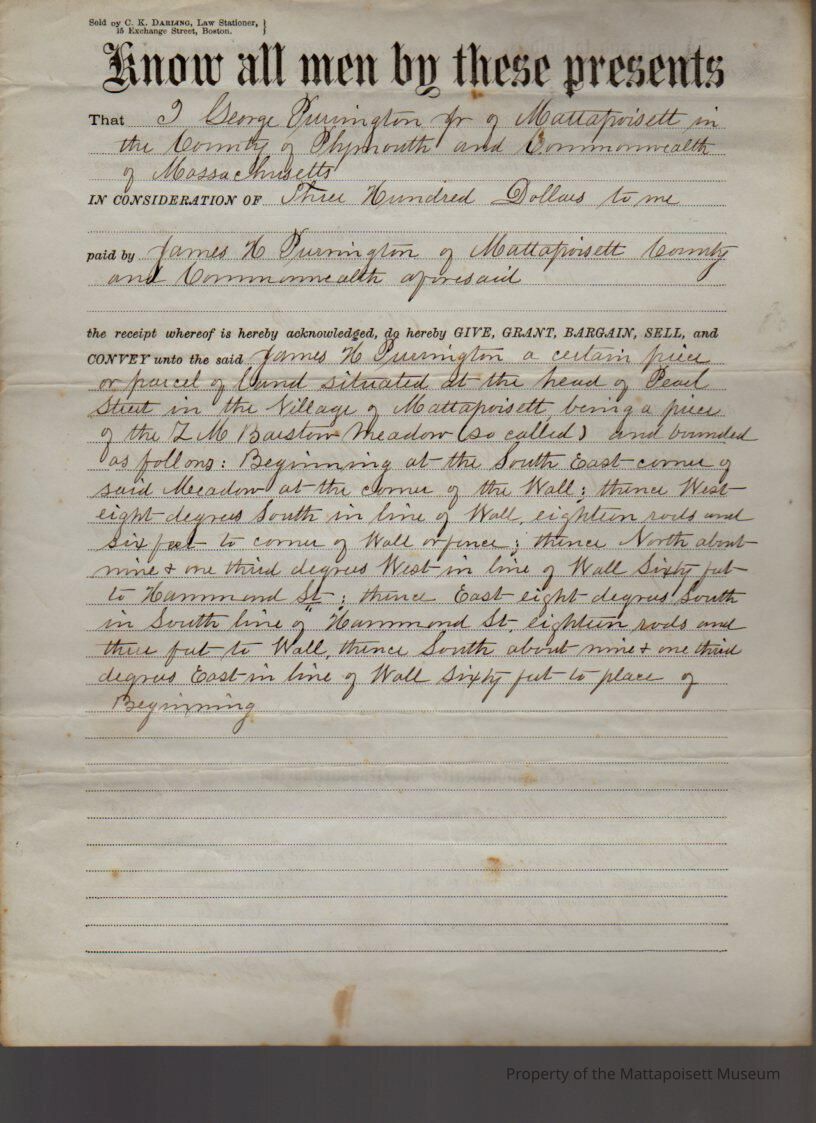 Sold by C. K. DARLING, Law Stationer,
15 Exchange Street, Boston.
Know all men by these presents
That I George Purrington Jr of Mattapoisett in
the County of Plymouth and Commonwealth
of Massachusetts
IN CONSIDERATION OF Three Hundred Dollars to me
paid by James H Purrington of Mattapoisett County
and Commonwealth aforesaid
the receipt whereof is hereby acknowledged, do hereby GIVE, GRANT, BARGAIN, SELL, and
CONVEY unto the said James H Purrington a certain piece
or parcel of land situated at the head of Pearl
Street in the Village of Mattapoisett, being a piece
of the Z M Barstow Meadow (so called) and bounded
as follows: Beginning at the South East corner of
said Meadow at the corner of the Wall; thence West
eight degrees South in line of Wall, eighteen rods and
six feet to corner of Wall or fence; thence North about
nine & one third degrees West in line of Wall Sixty feet
to Hammond St; thence East eight degrees South
in South line of Hammond St, eighteen rods and
three feet to Wall, thence South about nine & one third
degrees East in line of Wall Sixty feet to place of
Beginning
Property of the Mattapoisett Museum